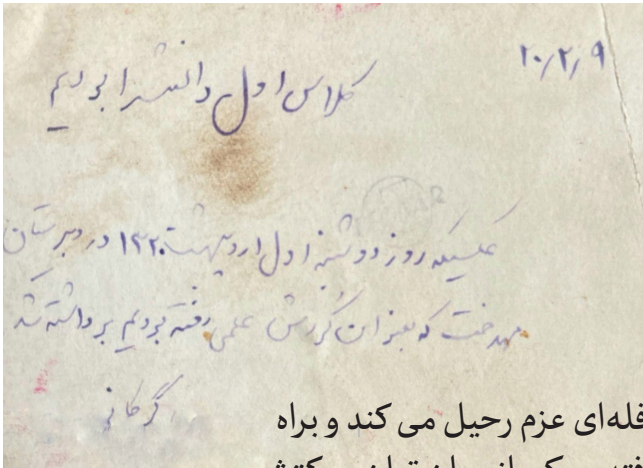 ۲۰/۲/۹
کلاس اول دانشسرا بودیم
عکسیکه روز دوشنبه اول اردیبهشت ۱۳۲۰ در دبیرستان
مهدخت که بعنوان گردش علمی رفته بودیم برداشته شد
گرگانی
فله‌ای عزم رحیل می کند و براه